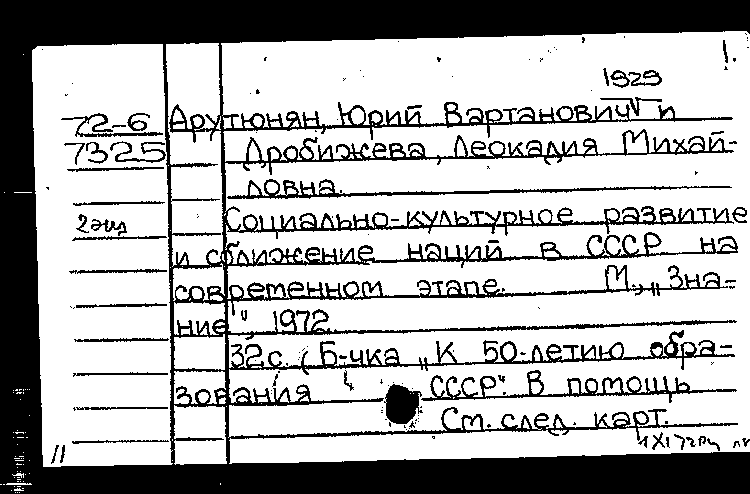 1.
1929
72-6 Арутюнян, Юрий Вартанович и
7325 Дробижева, Леокадия Михай-
ловна.
2 экз Социально-культурное развитие
и сближение наций в СССР на
современном этапе. М., „Зна-
ние", 1972.
32 с. (Б-чка „К 50-летию обра-
зования СССР". В помощь
См. след. карт.
11